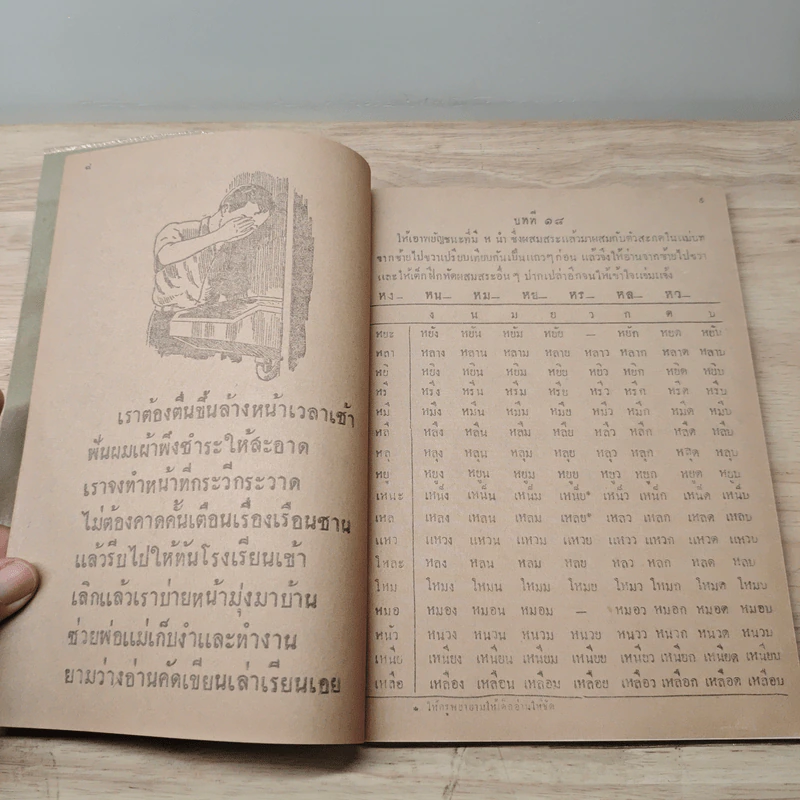 ๘
เราต้องตื่นขึ้นล้างหน้าเวลาเช้า
ฟันผมเผ้าพึงชำระให้สะอาด
เราจงทำหน้าที่กระวีกระวาด
ไม่ต้องคาดคั้นเตือนเรื่องเรือนชาน
แล้วรีบไปให้ทันโรงเรียนเช้า
เลิกแล้วเราบ่ายหน้ามุ่งมาบ้าน
ช่วยพ่อแม่เก็บงำและทำงาน
ยามว่างอ่านคัดเขียนเล่าเรียนเอย
บทที่ ๑๘
ให้เอาพยัญชนะที่มี ห นำ ซึ่งผสมสระแล้วมาผสมกับตัวสะกดในแม่บท
จากซ้ายไปขวาเปรียบเทียบกันเป็นแถวๆ ก่อน แล้วจึงให้อ่านจากซ้ายไปขวา
และให้เด็กฝึกหัดผสมสระอื่น ๆ ปากเปล่าอีกจนให้เข้าใจแจ่มแจ้ง
หง— หน— หม— หย— หร— หล— หว—
ง น ม ย ว ก ด บ
หยะ หยัง หยัน หยัม หยัย — หยัก หยัด หยับ
หลา หลาง หลาน หลาม หลาย หลาว หลาก หลาด หลาบ
หยิ หยิง หยิน หยิม หยิย หยิว หยิก หยิด หยิบ
หรี หรีง หรีน หรีม หรีย หรีว หรีก หรีด หรีบ
หมึ หมึง หมึน หมึม หมึย หมึว หมึก หมึด หมึบ
หลื หลืง หลืน หลืม หลืย หลืว หลืก หลืด หลืบ
หลุ หลุง หลุน หลุม หลุย หลุว หลุก หลุด หลุบ
หยู หยูง หยูน หยูม หยูย หยูว หยูก หยูด หยูบ
เหนะ เหน็ง เหน็น เหน็ม เหน็ย* เหน็ว เหน็ก เหน็ด เหน็บ
เหล เหลง เหลน เหลม เหลย* เหลว เหลก เหลด เหลบ
แหว แหวง แหวน แหวม แหวย แหวว แหวก แหวด แหวบ
โหละ หลง หลน หลม หลย หลว หลก หลด หลบ
โหม โหมง โหมน โหมม โหมย โหมว โหมก โหมด โหมบ
หมอ หมอง หมอน หมอม — หมอว หมอก หมอด หมอบ
หนัว หนวง หนวน หนวม หนวย หนวว หนวก หนวด หนวบ
เหนีย เหนียง เหนียน เหนียม เหนียย เหนียว เหนียก เหนียด เหนียบ
เหลือ เหลือง เหลือน เหลือม เหลือย เหลือว เหลือก เหลือด เหลือบ
ให้ครูพยายามให้เด็กอ่านให้ชัด